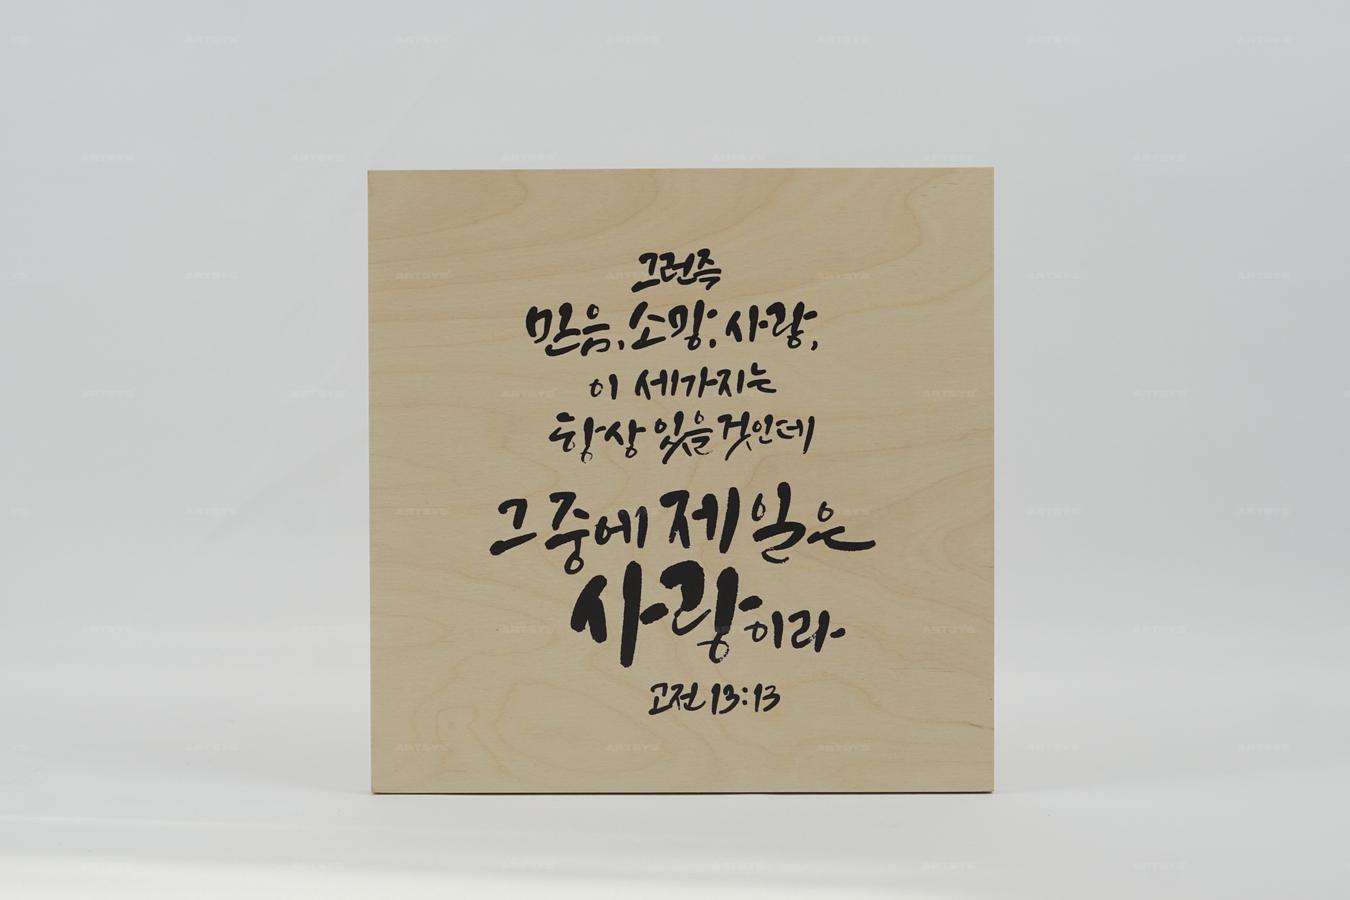 그런즉
믿음, 소망, 사랑,
이 세가지는
항상 있을 것인데
그 중에 제일은
사랑이라
고전 13:13